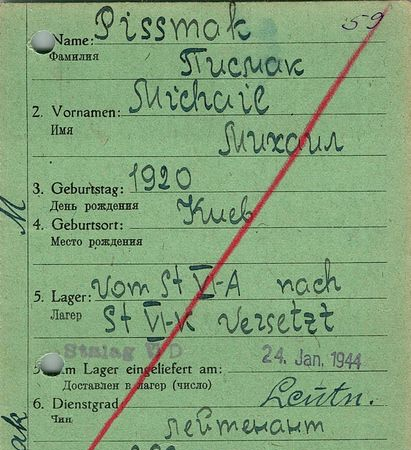 59
Name: Pissmak
Фамилия
Писмак
2. Vornamen: Michail
Имя
Михаил
3. Geburtstag: 1920
День рождения
Киев
4. Geburtsort:
Место рождения
M
5. Lager: vom St VI-A nach
Лагер
St VI-K versetzt
Stalag VI D
5. Im Lager eingeliefert am: 24. Jan. 1944
Доставлен в лагер (число)
6. Dienstgrad Leutn.
Чин
лейтенант